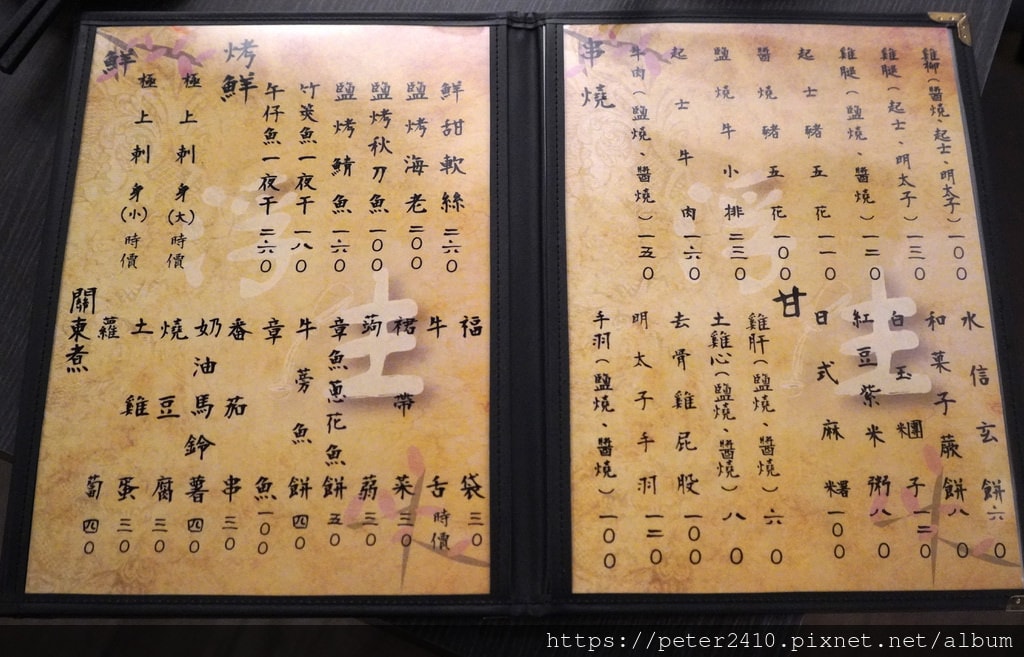 鮮
極上刺身(小)時價
極上刺身(大)時價
烤鮮
午仔魚一夜干二六0
竹筴魚一夜干一八0
鹽烤鯖魚一六0
鹽烤秋刀魚一00
鹽烤海老二00
鮮甜軟絲二六0
關東煮
蘿蔔四0
土雞蛋三0
燒豆腐三0
奶油馬鈴薯四0
番茄串三0
章魚一00
牛蒡魚餅四0
章魚蔥花魚餅五0
蒟蒻三0
裙帶菜三0
牛舌時價
福袋三0
串燒
牛肉(鹽燒、醬燒)一五0
起士牛肉一六0
鹽燒牛小排二三0
醬燒豬五花一00
起士豬五花一一0
雞腿(鹽燒、醬燒)一二0
雞腿(起士、明太子)一三0
雞柳(醬燒、起士、明太子)一00
手羽(鹽燒、醬燒)一00
明太子手羽一二0
去骨雞屁股一00
土雞心(鹽燒、醬燒)八0
雞肝(鹽燒、醬燒)六0
甘
日式麻糬一00
紅豆紫米粥八0
白玉糰子一二0
和菓子蕨餅八0
水信玄餅六0
浮生
浮生
https://peter2410.pixnet.net/album